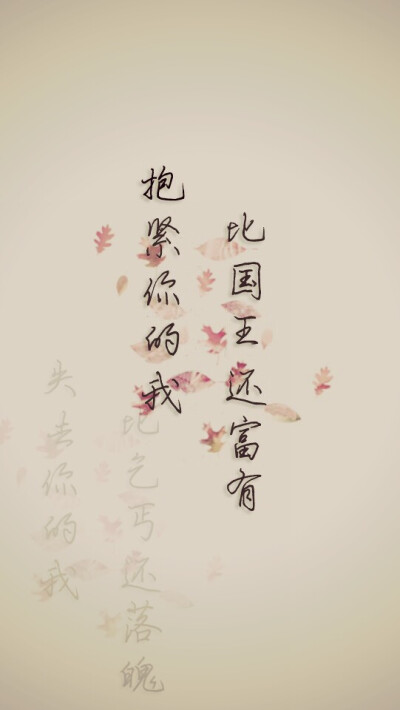 抱紧你的我
比国王还富有
失去你的我
比乞丐还落魄